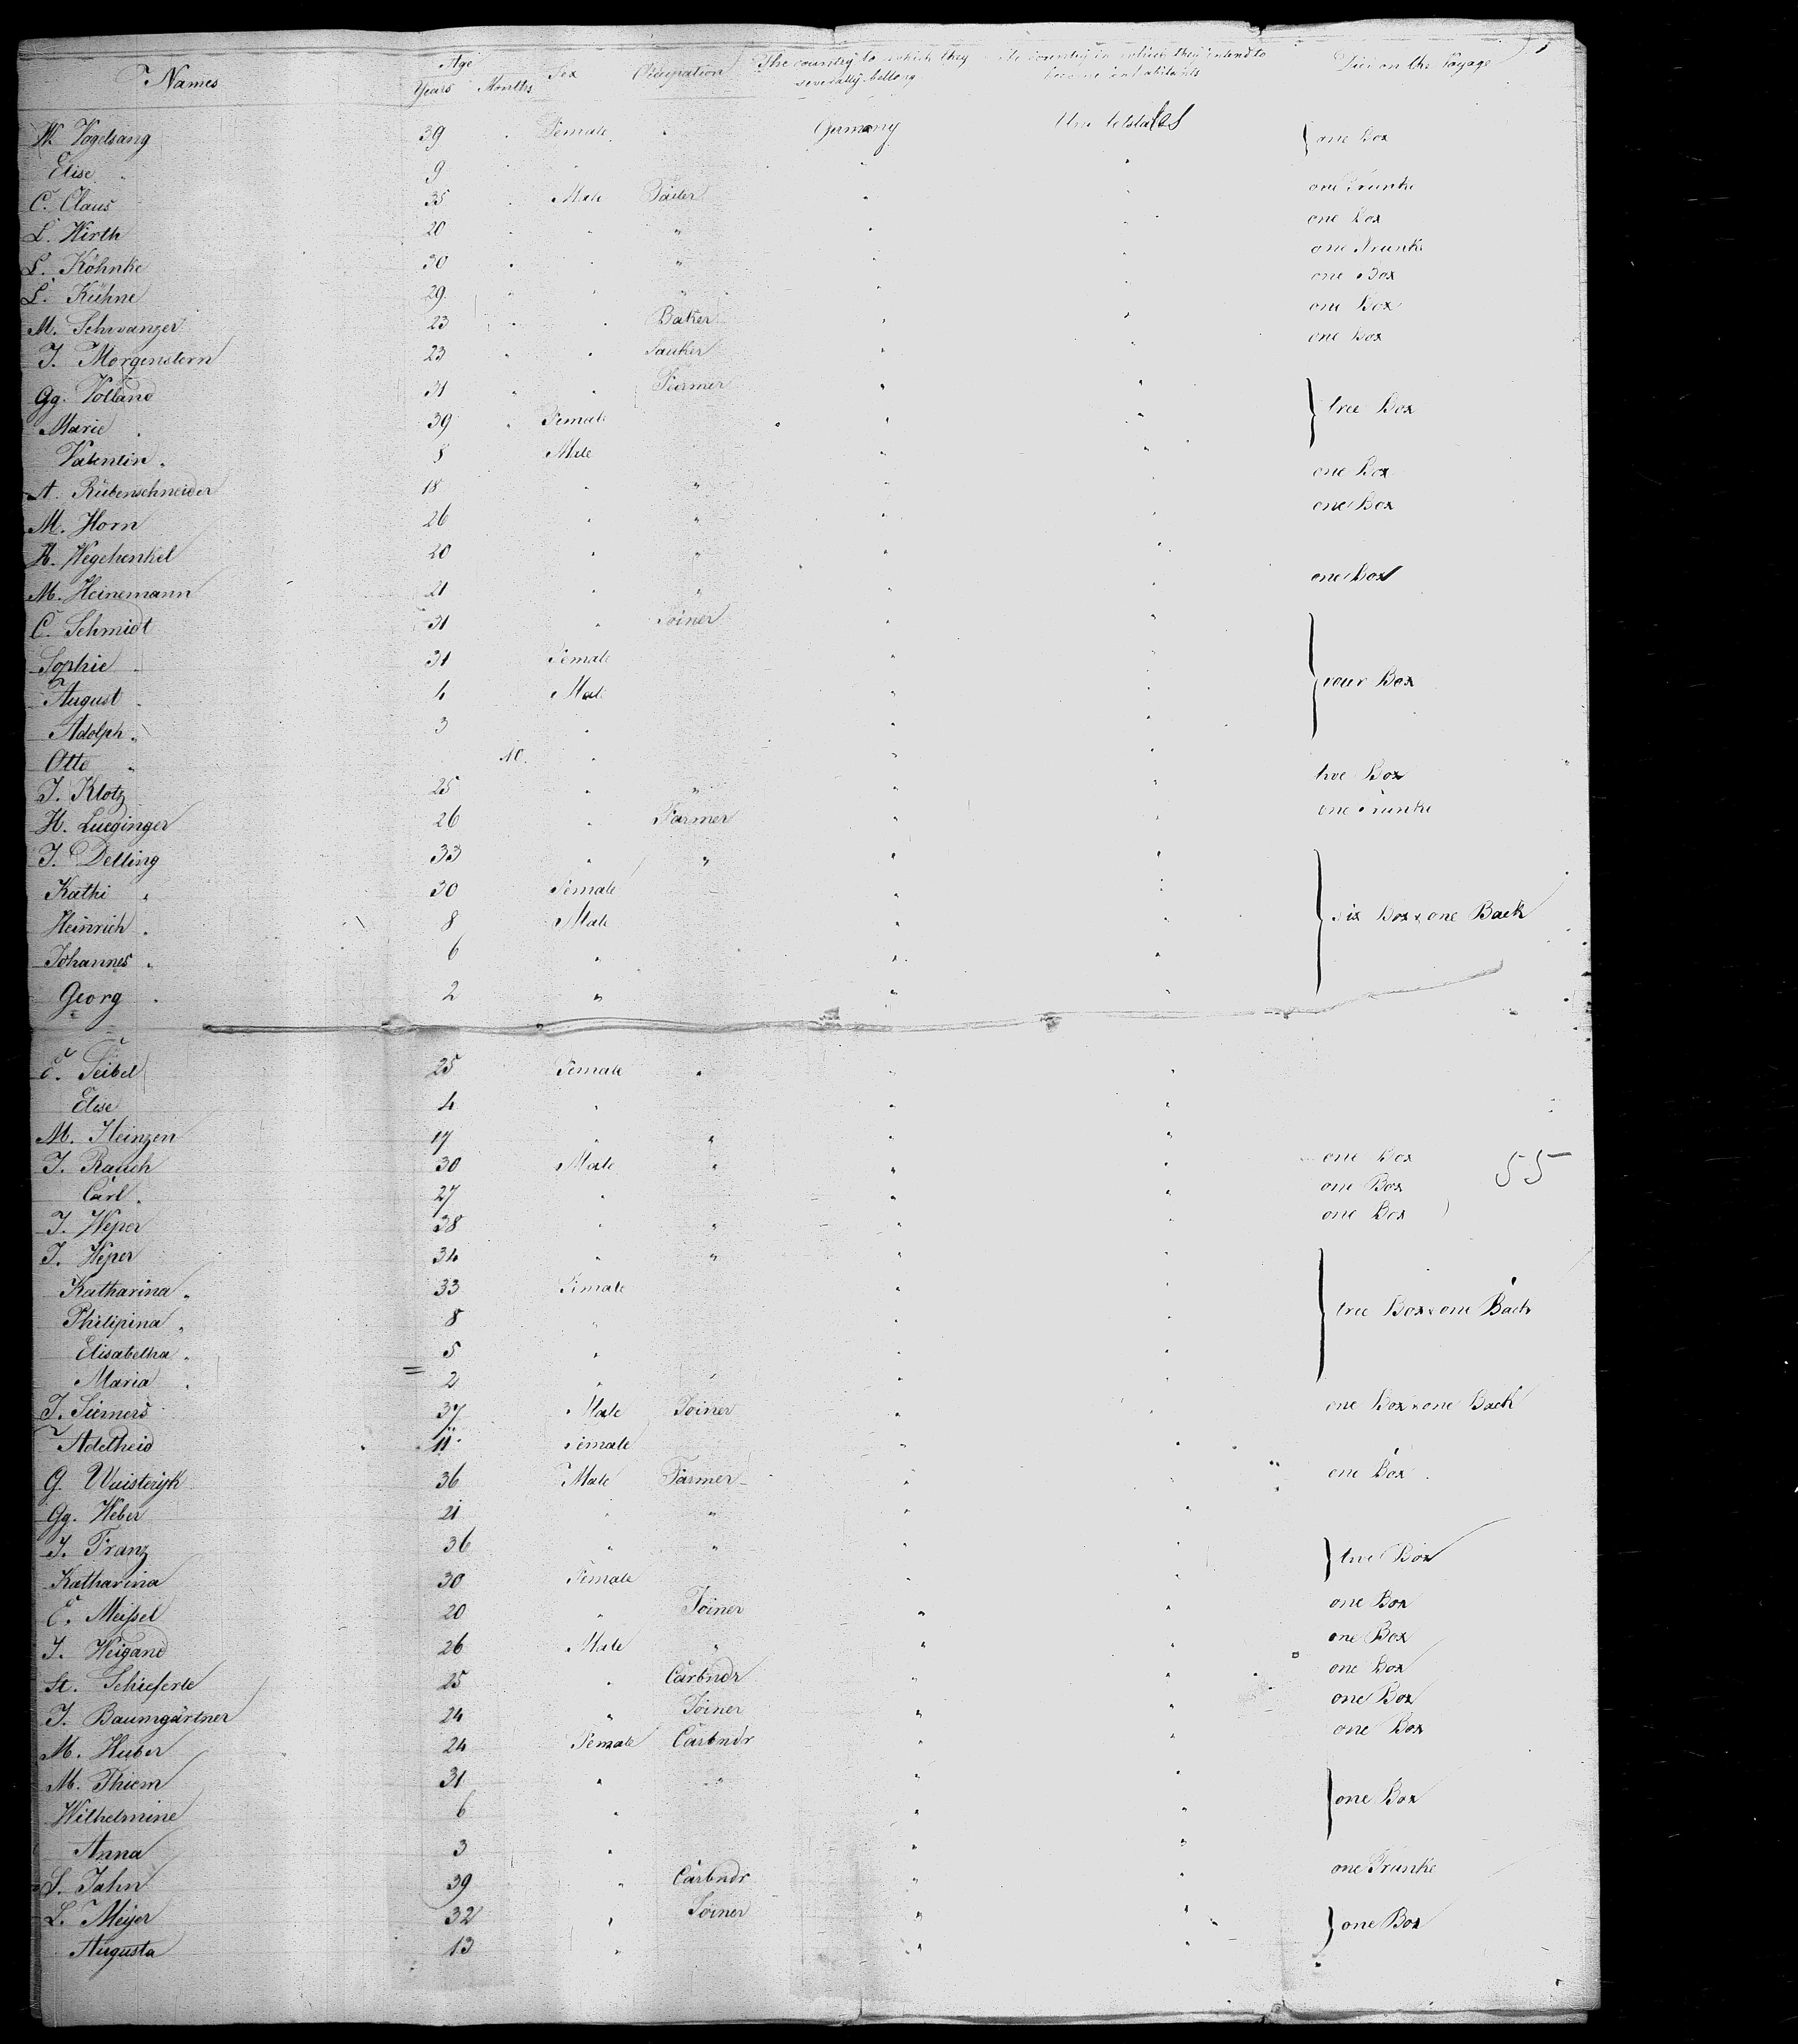 Names Age Years Months Sex Occupation The country to which they severally belong The country in which they intend to become inhabitants Died on the Voyage
W. Vogelsang 39 Female " Germany United States } one Box
Elise " 9 " " "
C. Claus 35 " Male Tailer " " one Trunke
L. Wirth 20 " " " " " one Box
L. Köhnke 30 " " " " " one Trunke
L. Kühne 29 " " " " " one Box
M. Schwanzer 23 " " Baker " " one Box
J. Morgenstern 23 " " " " one Box
Gg. Volland 31 " " Farmer " " } tree Box
Marie " 39 " Female " "
Valentin " 8 Male " "
A. Rübenschneider 18 " " " " one Box
M. Horn 26 " " " " one Box
H. Wegehenkel 20 " " " "
M. Heinemann 21 " " " " one Box
C. Schmidt 31 " Joiner " " } vour Box
Sophie " 31 Female " "
August " 4 Male " "
Adolph " 3 " " "
Otto " 10 " " "
J. Klotz 25 " " " " two Box
H. Lueginger 26 " Farmer " " one Trunke
J. Delling 33 " " " " } six Box & one Back
Kathi " 30 Female " "
Heinrich " 8 Male " "
Johannes " 6 " " "
Georg " 2 " " "
E. Seibel 25 Female " " "
Elise 4 " " "
M. Heinzen 17 " " " "
J. Rauch 30 Male " " " one Box 55
Carl " 27 " " " one Box
J. Weper 38 " " " " one Box
J. Weper 34 " " " " } tree Box & one Back
Katharina " 33 Female " "
Philipina " 8 " " "
Elisabetha " 5 " " "
Maria " 2 " " " "
J. Siemers 37 Male Joiner " " one Box & one Back
Adelheid 11 Female " "
G. Wuisterijk 36 Male Farmer " " one Box
Gg. Weber 21 " " " "
J. Franz 36 " " " " } two Box
Katharina 30 Female " "
E. Meißel 20 " Joiner " " one Box
J. Weigand 26 Male " " " one Box
St. Schieferle 25 " Carbndr " " one Box
J. Baumgärtner 24 " Joiner " " one Box
M. Huber 24 Female Carbndr " " one Box
M. Thiem 31 " " " " } one Box
Wilhelmine 6 " " "
Anna 3 " " "
S. Jahn 39 " Carbndr " " one Trunke
L. Meijer 32 " Joiner " " } one Box
Augusta 13 " " "